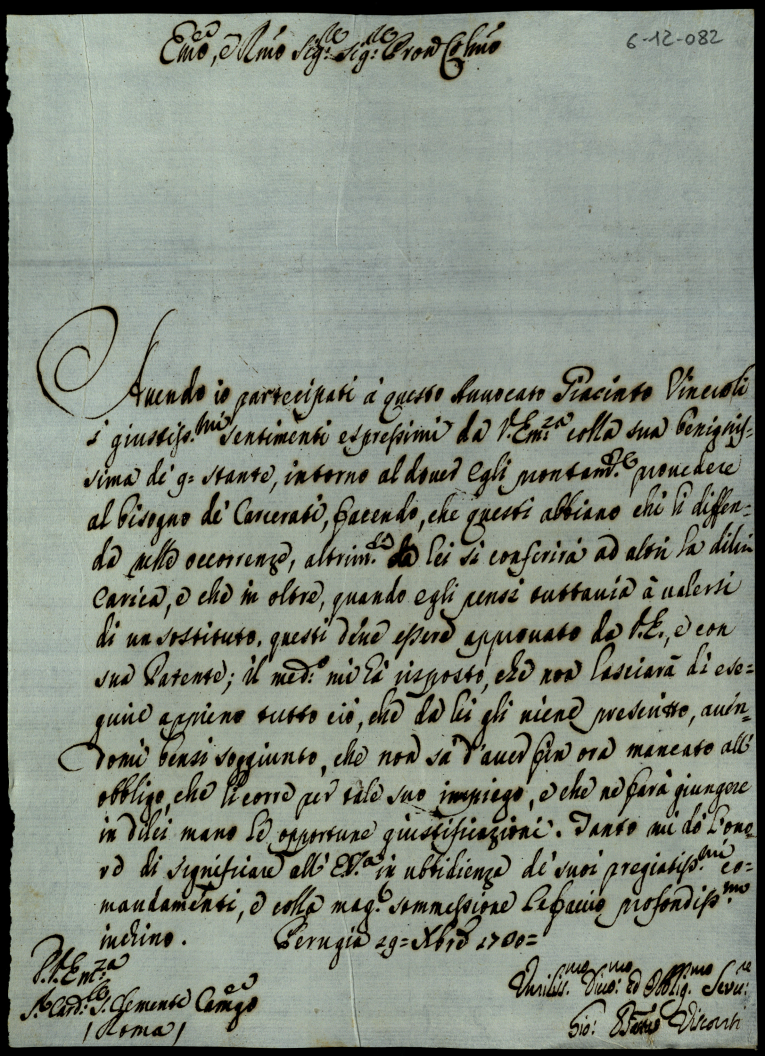 Emo, e Rmo Sig:re Sig:re Pron Colmo
6-12-082
Avendo io partecipati à questo Avvocato Giacinto Vincioli
i giustiss.mi sentimenti espressimi da V.Em:za colla sua benignis-
sima de' 9= stante, intorno al dover egli prontam.te provedere
al bisogno de' Carcerati, facendo, che questi abbiano chi li diffen-
da nelle occorrenze, altrim.ti da lei si conferirà ad altri la di lui
Carica, e che in oltre, quando egli pensi tuttavia à valersi
di un sostituto, questi deve essere approvato da V.E., e con
sua Patente; il med:o mi hà risposto, che non lasciarà di ese=
guire appieno tutto ciò, che da lei gli viene prescritto, avén-
domi bensi soggiunto, che non sà d'aver fin ora mancato all'
obbligo, che li corre per tale suo impiego, e che ne farà giungere
in di lei mano le opportune giustificazioni. Tanto mi dò l'ono-
re di significare all' E.V.a in ubbidienza de' suoi pregiatiss.mi co=
mandamenti, e colla mag.e sommessione Le faccio profondiss.mo
inchino. Perugia 29= Xbre 1700=
V.Em:za
S.r Card:le S. Clemente Camgo
/ Roma /
Umilis.mo Divo:mo ed Obblig.mo Serv:re
Gio: Visconti